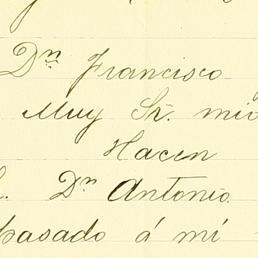 Dn. Francisco
Muy Sr. mio
Hacen
Dn Antonio
pasado á mi